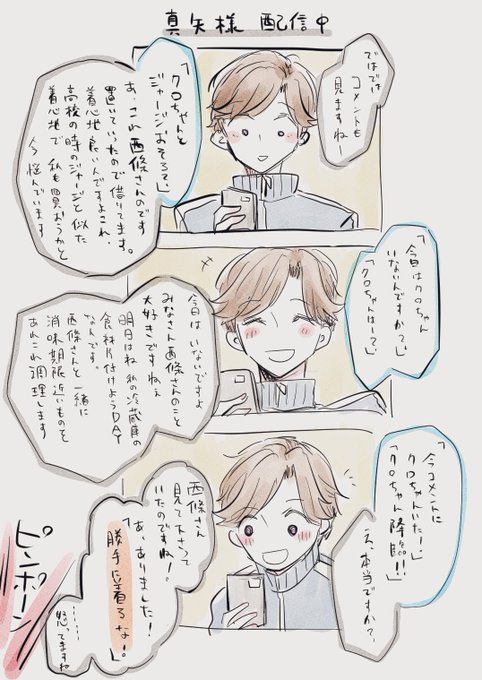 真矢様 配信中
ではでは
コメントも
見ますねー
「クロちゃんと
ジャージおそろい」
あ、これ西條さんのです
置いていったので借りてます。
着心地良いんですよこれ、
高校の時のジャージと似た
着心地で私も買おうかと
今悩んでいます
「今日はクロちゃん
いないんですか?」
「クロちゃんはーて」
今日はいないですよ
みなさん西條さんのこと
大好きですねぇ
明日はね私の冷蔵庫の
食材片付けようDAY
なんです。
西條さんと一緒に
消味期限近いものを
あれこれ調理します
「今コメントに
クロちゃんいたー!」
「クロちゃん降臨!!」
え、本当ですか?
西條さん
見て下さって
いたのですね!
あ、ありました!
「勝手に着るな!」
………怒ってますね
ピンポーン